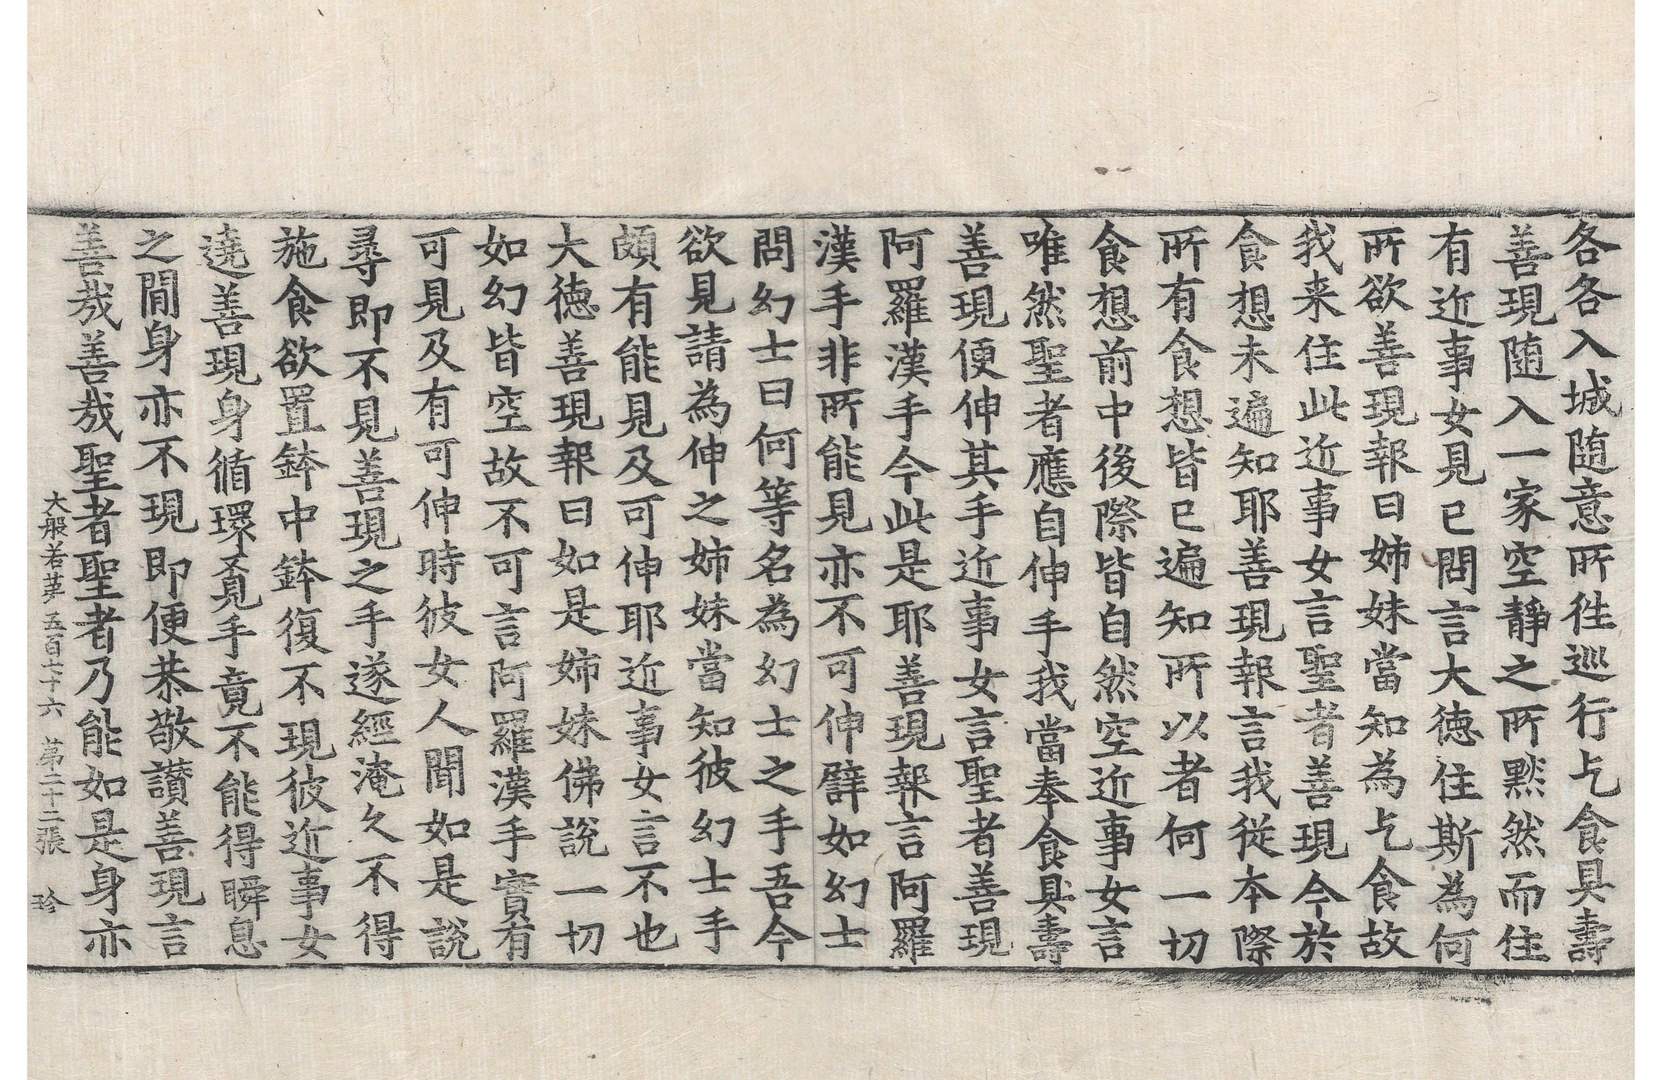 各各入城随意所往巡行乞食具壽
善現随入一家空靜之所黙然而住
有近事女見已問言大德住斯為何
所欲善現報曰姉妹當知為乞食故
我来住此近事女言聖者善現今於
食想未遍知耶善現報言我從夲際
所有食想皆已遍知所以者何一切
食想前中後際皆自然空近事女言
唯然聖者應自伸手我當奉食具壽
善現便伸其手近事女言聖者善現
阿羅漢手今此是耶善現報言阿羅
漢手非所能見亦不可伸譬如幻士
問幻士曰何等名為幻士之手吾今
欲見請為伸之姉妹當知彼幻士手
頗有能見及可伸耶近事女言不也
大德善現報曰如是姉妹佛說一切
如幻皆空故不可言阿羅漢手實有
可見及有可伸時彼女人聞如是說
尋即不見善現之手遂經淹久不得
施食欲置鉢中鉢復不現彼近事女
遶善現身循環覓手竟不能得瞬息
之閒身亦不現即便恭敬讃善現言
善哉善哉聖者聖者乃能如是身亦
大般若苐五百七十六 第二十二張 珍